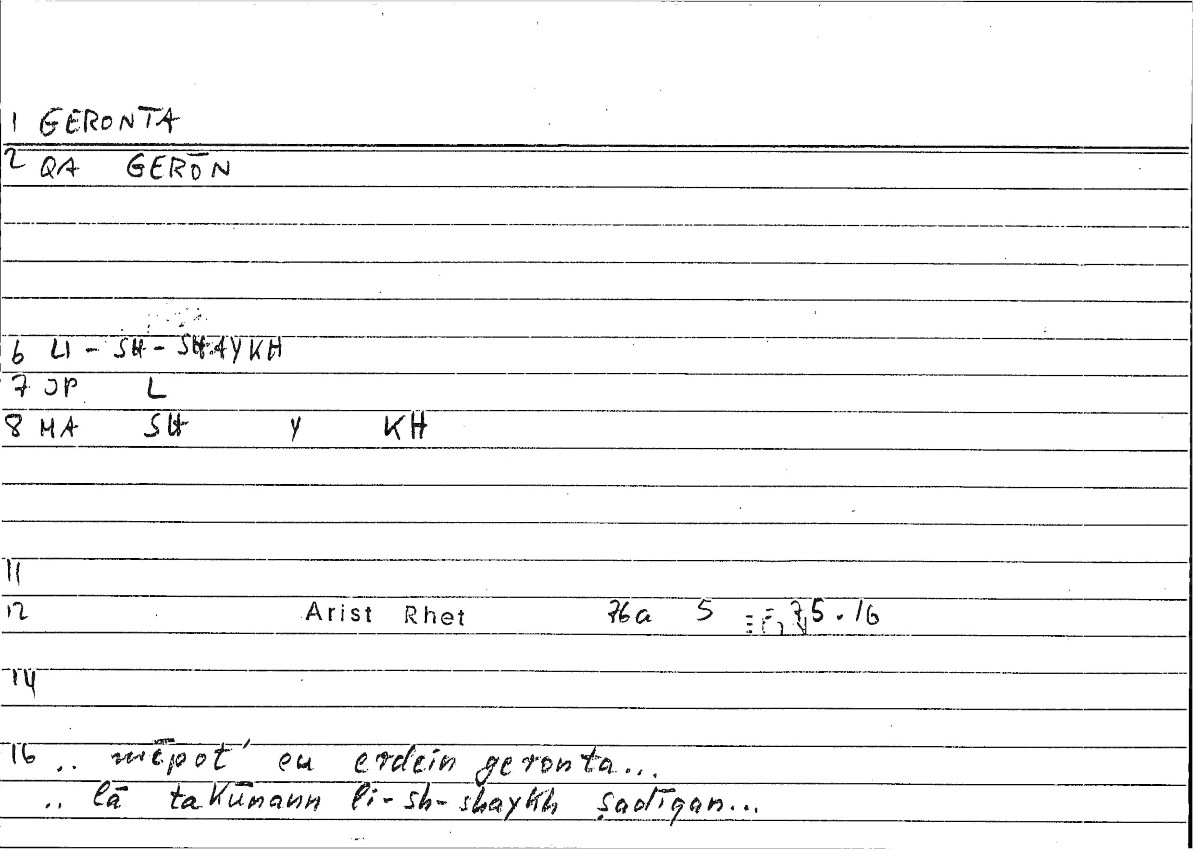 1 GERONTA
2 QA GERŌN
6 LI-SH-SHAYKH
7 JP L
8 MA SH Y KH
11
12 Arist Rhet 76a 5 75.16
14
16 .. mēpot' eu erdein geronta...
.. lā takūnann li-sh-shaykh ṣadīqan...